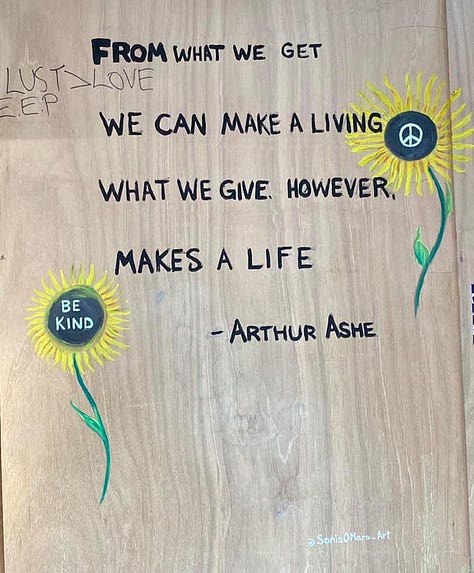 FROM WHAT WE GET
LUST > LOVE
E.E.P
WE CAN MAKE A LIVING
WHAT WE GIVE. HOWEVER,
MAKES A LIFE
BE
KIND
- ARTHUR ASHE
@SoniaOMara_Art